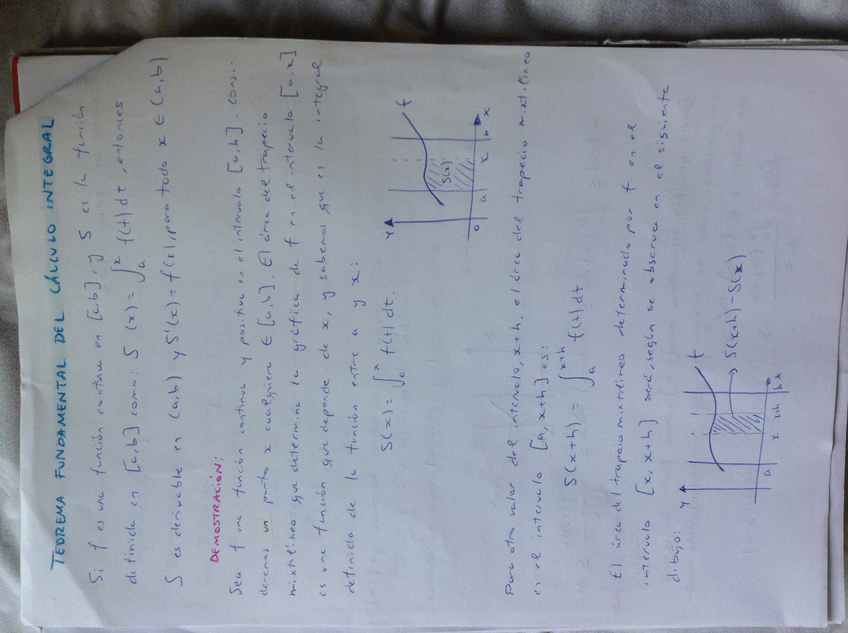 TEOREMA FUNDAMENTAL DEL CÁLCULO INTEGRAL
Si f es una función continua en [a,b], y S es la función
definida en [a,b] como: S(x) = ∫ₐˣ f(t)dt, entonces
S es derivable en (a,b) y S'(x) = f(x), para todo x ∈ (a,b)
DEMOSTRACIÓN:
Sea f una función continua y positiva en el intervalo [a,b]. Consi-
deremos un punto x cualquiera ∈ [a,b]. El área del trapecio
mixtilíneo que determina la gráfica de f en el intervalo [a,x]
es una función que depende de x, y sabemos que es la integral
definida de la función entre a y x:
S(x) = ∫ₐˣ f(t) dt.
Y
f
S(x)
0 a x b X
Para otro valor del intervalo, x+h, el área del trapecio mixtilíneo
en el intervalo [a, x+h] es:
S(x+h) = ∫ₐˣ⁺ʰ f(t)dt
El área del trapecio mixtilíneo determinado por f en el
intervalo [x, x+h] será, según se observa en el siguiente
dibujo:
Y
f
S(x+h)-S(x)
a x x+h b X